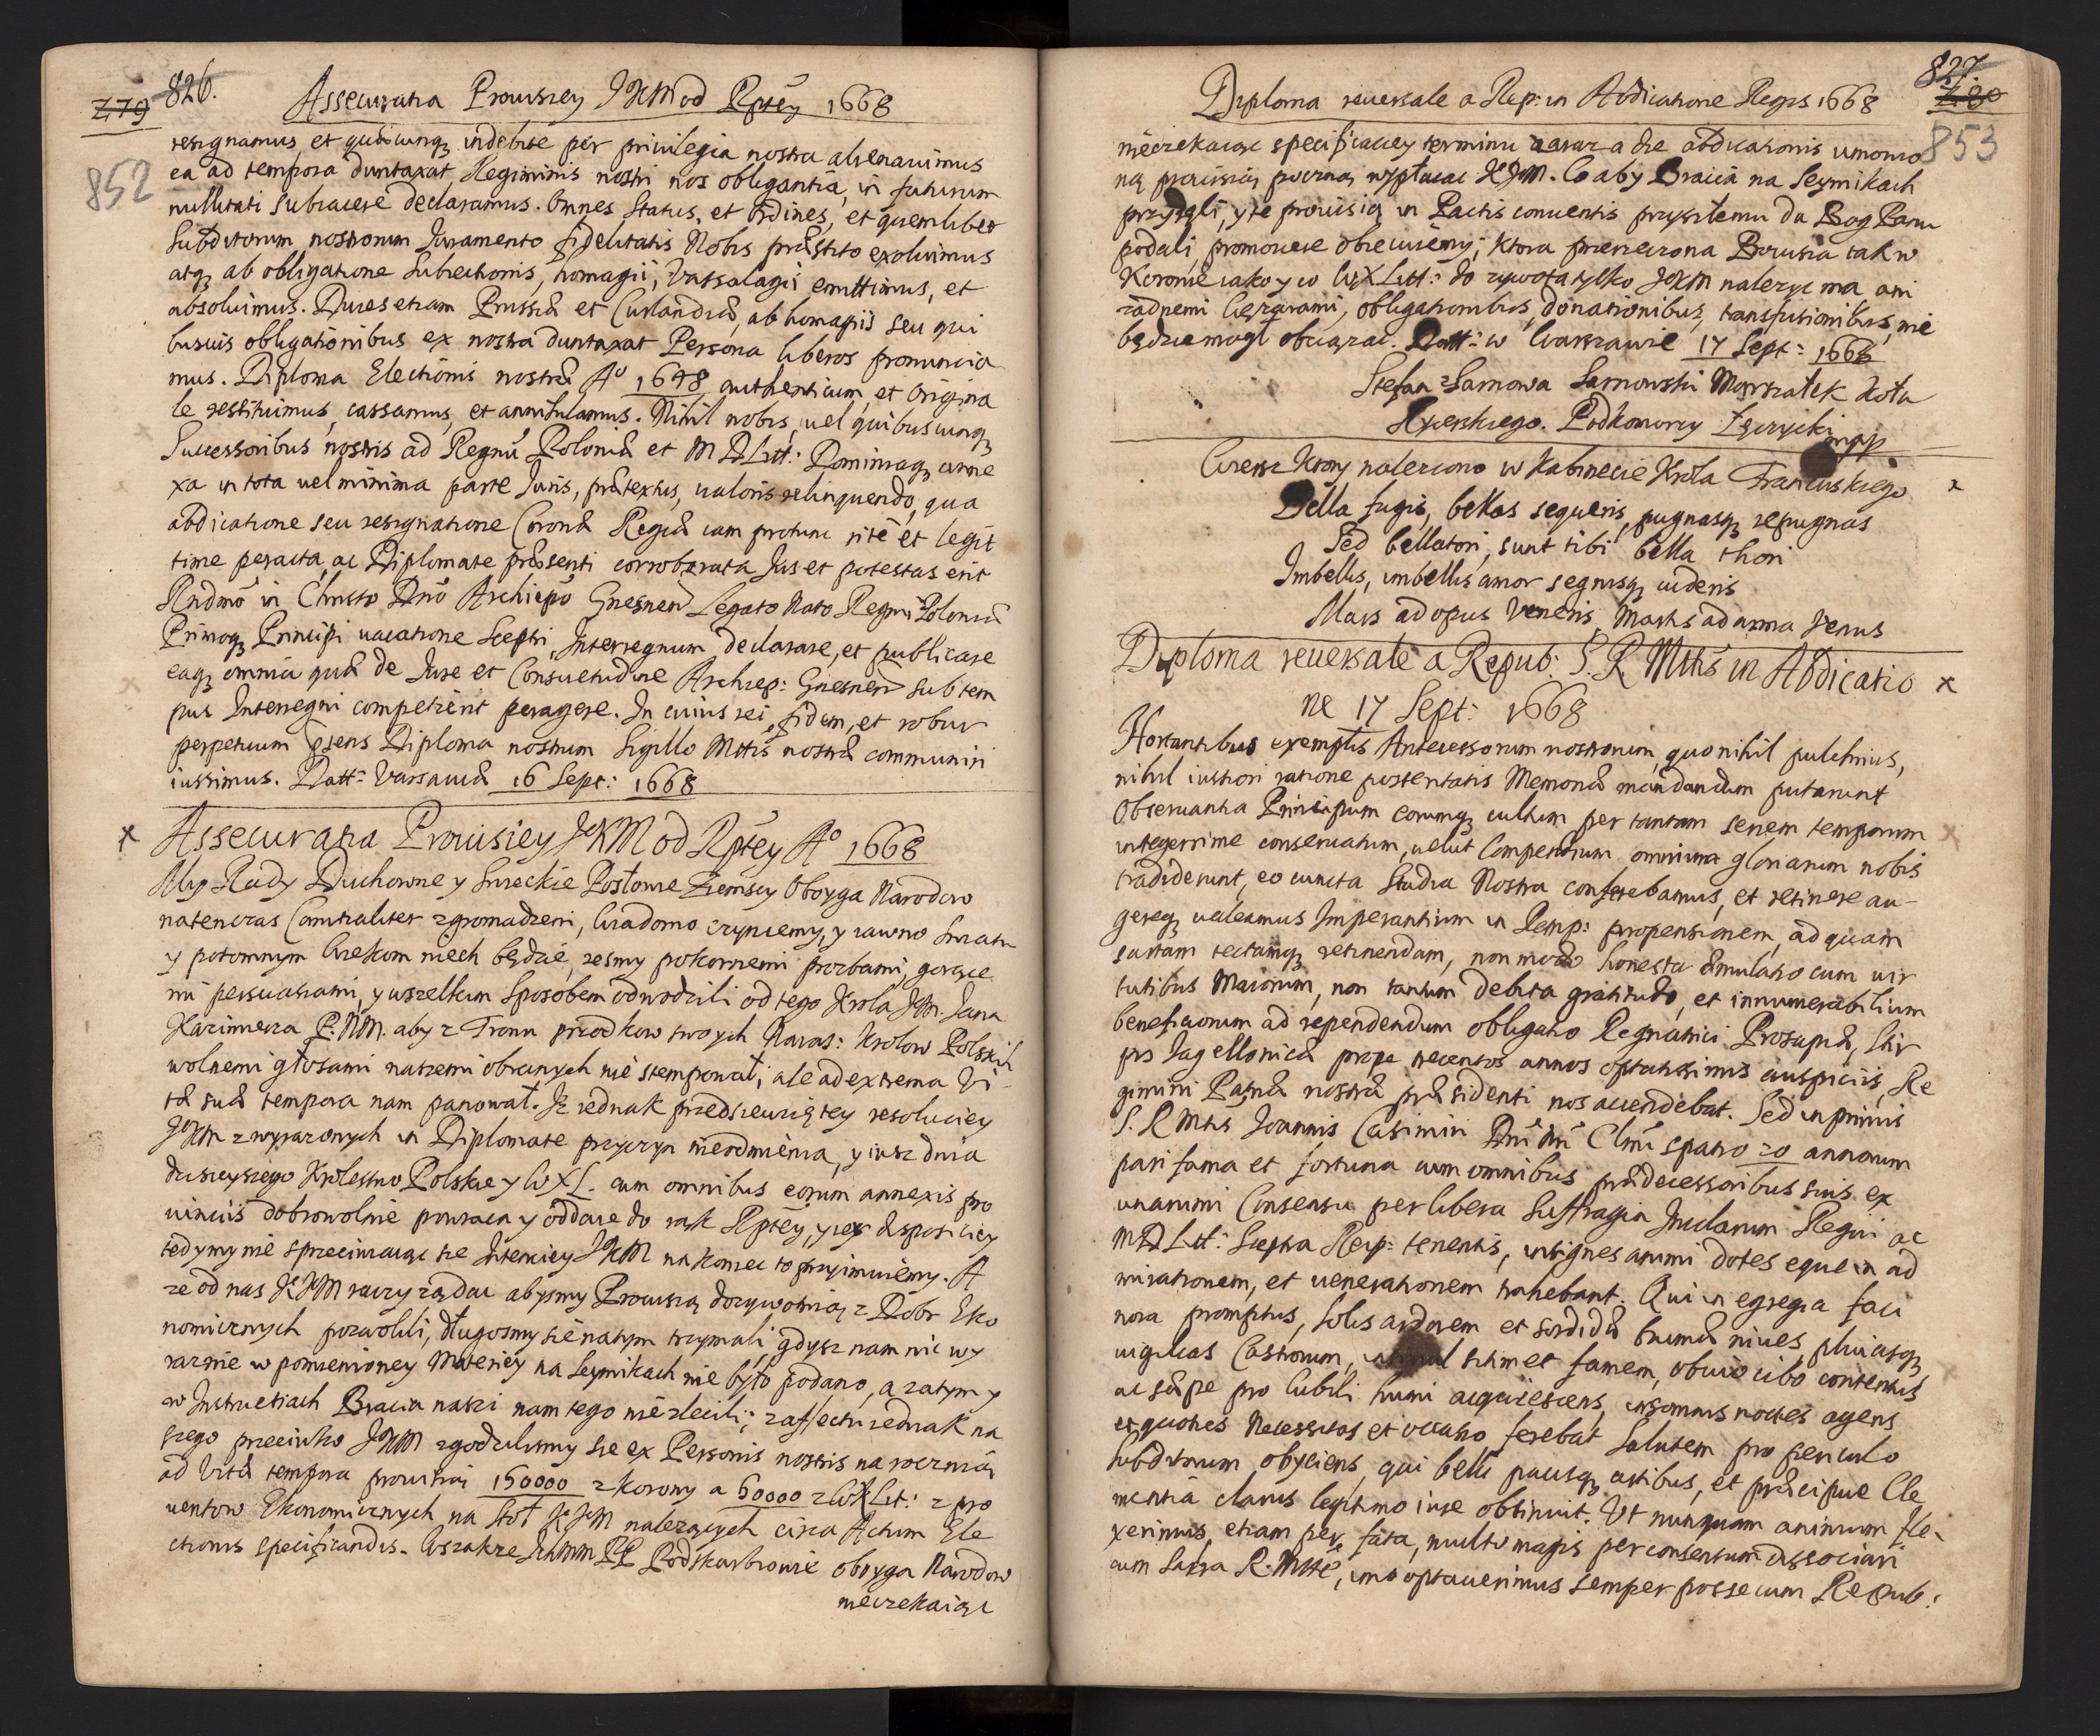 479 826. Assecuratia Prouisiey JKM od Rptey 1668
852
resignamus et quaecunq indebite per priuilegia nostra alienauimus
ea ad tempora duntaxat Regiminis nostri nos obligantia, in futurum
nullitati subiacere declaramus. Omnes Status, et Ordines, et quemlibet
Subditorum nostrorum Juramento fidelitatis Nobis præstito exoluimus
atq ab obligatione Subiectionis, homagii, Vassalagii emittimus, et
absoluimus. Duces etiam Prussiæ et Curlandiæ, ab homagiis seu qui
busuis obligationibus ex nostra duntaxat Persona liberos pronuncia
mus. Diploma Electionis nostræ Aº 1648 authenticum, et origina
le restituimus, cassamus, et annihilamus. Nihil nobis, uel quibuscunq
Successoribus nostris ad Regnū Poloniæ et M D Litt: Dominiaq anne
xa in tota uel minima parte Juris, prætextus, ualoris relinquendo, qua
abdicatione seu resignatione Coronæ Regiæ iam protunc ritè et legit
time peracta, ac Diplomate præsenti corroborata Jus et potestas erit
Rndmō in Christo Dnō Archiepō Gnesnen Legato Nato Regni Poloniæ
Primoq Principi uacatione Sceptri, Interregnum declarare, et publicare
eaq omnia quæ de Jure et Consuetudine Archiep: Gnesnen sub tem
pus Interregni competierit peragere. In cuius rei fidem, et robur
perpetuum Psens Diploma nostrum Sigillo Mttis nostræ communiri
iussimus. Datt: Varsauiæ 16 Sept: 1668
x Assecuratia Prouisiey JKM od Rptey Aº 1668
My Rady Duchowne y Swieckie Posłowie Ziemscy Oboyga Narodow
natenczas Comitialiter zgromadzeni, Wiadomo czyniemy, y iawno swiatu
y potomnym Wiekom niech będzie, zesmy pokornemi prozbami, gorące
mi persuasiami, y wszelkim sposobem odwodzili od tego Krola Jm. Jana
Kazimierza P. N M. aby z Tronu przodkow swoych Naias: Krolow Polskich
wolnemi głosami naszemi obranych nie stempował, ale ad extrema Vi
tæ suæ tempora nam panował. Iz iednak przedsiewziętey resoluciey
JKM z wyrazonych in Diplomate przyczyn nieodmienia, y iusz dnia
dzisieyszego Krolestwo Polskie y W X L. cum omnibus eorum annexis pro
uinciis dobrowolnie powraca y oddaie do rąk Rptey, y iey disposiciey
tedy my nie sprzeciwiaiąc się Intenciey JKM nakoniec to przyimuiemy. A
ze od nas JKM raczy ządac abysmy Prouisią dozywotnią z Dobr Eko
nomicznych pozwolili, długosmy się na tym trzymali, gdysz nam nic wy
raznie w pomienioney Materiey na Seymikach nie było podano, a zatym y
w Instructiach Bracia naszi nam tego nie zlecili; z affectu iednak na
szego przeciwko JKM zgodzilismy się ex Personis nostris na roczną
ad Vitæ tempora prouisią 150000 z korony a 50000 z W X Lit: z pro
uentow Ekonomicznych na Stoł JKM nalezących circa Actum Ele
ctionis specificandis. Wszakze Ichmm PP Podskarbiowie oboyga Narodow
nieczekaiąc
Diploma reuersale a Rep: in Abdicatione Regis 1668 827. 480
853
nieczekaiąc specificaciey terminu zaraz a die abdicationis umowio
ną prouisią poczną wypłacac JKM. Co aby Bracia na Seymikach
przyięli, y te prouisią in Pactis conuentis przyszłemu da Bog Panu
podali, promouere obiecuiemy; ktora przerzeczona Prouisia tak w
Koronie iako y w W X Litt: do zywota tylko JKM nalezyc ma ani
zadnemi Cięzarami, obligationibus, donationibus, transfusionibus, nie
będzie mogł obciązac. Datt: w Warszawie 17 Sept: 1668
Stefan z Sarnowa Sarnowski Marszałek Koła
Rycerskiego. Podkomorzy Łęczycki mpp
Wiersz ktory naleziono w Kabinecie Krola Francuskiego x
Bella fugis, bellas sequeris, pugnasq repugnas
Sed bellatori, sunt tibi bella thori
Imbellis, imbellis amor segnisq uideris
Mars ad opus Veneris, Martis ad arma Venus
Diploma reuersale a Repub: S. R. Mttis in Abdicatio x
ne 17 Sept: 1668
Hortantibus exemplis Antecessorum nostrorum, quo nihil pulchrius,
nihil iustiori ratione posteritatis Memoriæ mandandum putarunt
Obseruantia Principum eorumq cultum per tantam seriem temporum
integerrime conseruatum, uelut Compendium omnium gloriarum nobis
tradiderunt, eo cuncta Studia Nostra conferebamus, et retinere au-
gereq ualeamus Imperantium in Remp: propensionem, ad quam
sartam tectamq retinendam, non modo honesta æmulatio cum uir
tutibus Maiorum, non tantum debita gratitudo, et innumerabilium
beneficiorum ad rependendum obligatio Regnatrici Prosapiæ, Stir
pis Jagellonicæ prope trecentos annos optatissimis auspiciis, Re
gimini Patriæ nostræ præsidenti nos accendebat. Sed in primis
S. R Mtis Joannis Casimiri Dni Nri Clmi spatio 20 annorum
pari fama et fortuna cum omnibus prædecessoribus suis ex
unanimi Consensu per libera Suffragia Inclarum Regni ac
M D Litt: Sceptra Reip: tenentis, insignes animi dotes eque in ad
mirationem, et uenerationem trahebant. Qui in egregia faci
nora promptus, Solis ardorem et sordidæ brumæ niues, pluuiasq
uigilias Castrorum, sitim et famem, obuio cibo contentus
ac sæpe pro Cubili humi acquiescens, insomnis noctes agens
et quoties Necessitas et occasio ferebat Salutem pro periculo
Subditorum obyciens, qui belli pacisq artibus, et præcipue Cle
mentia clarus legitimo iure obtinuit. Ut nunquam animum fle-
xerimus, etiam per fata, multo magis per consensum dissociari
cum Sacra R. Mtte, imo optauerimus semper posse cum Repub: